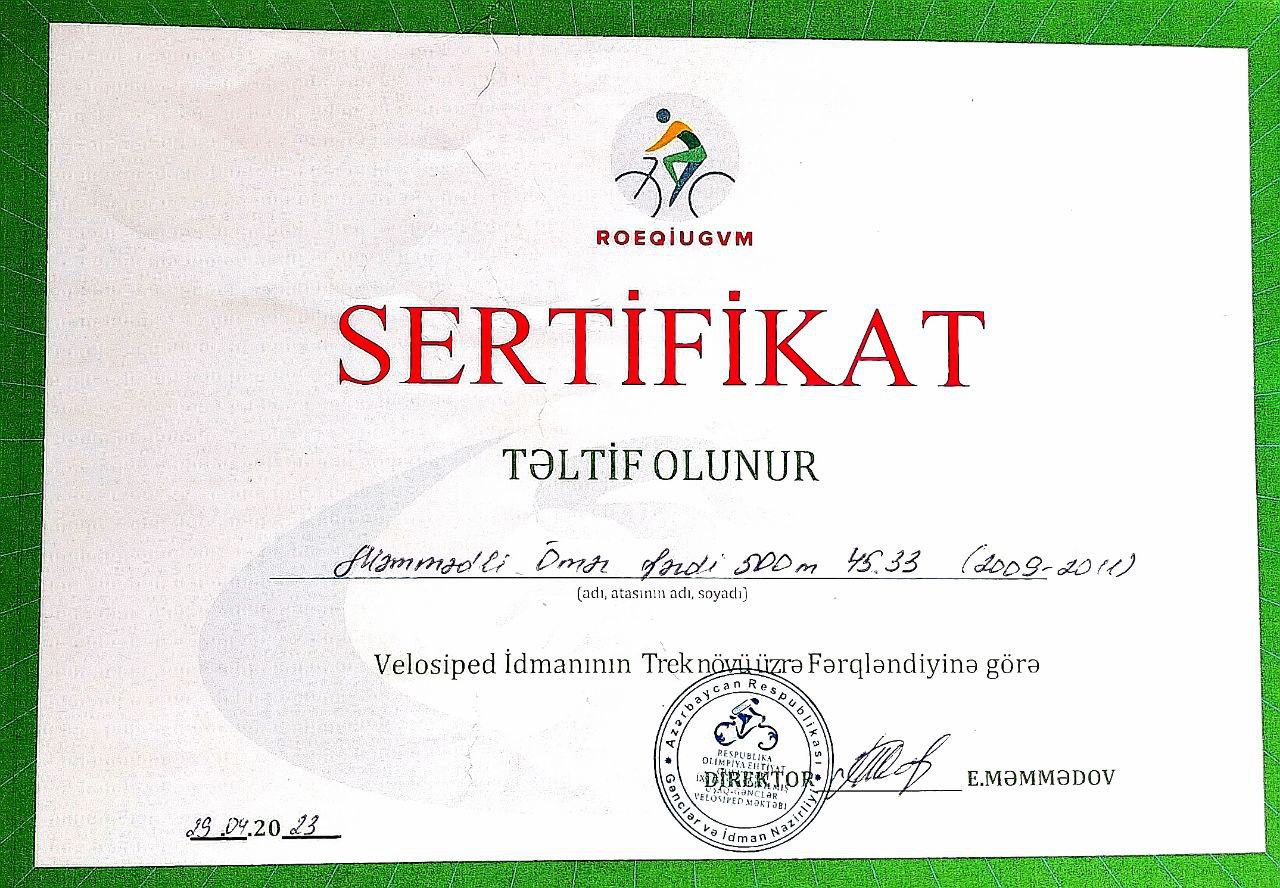 ROEQİUGVM
SERTİFİKAT
TƏLTİF OLUNUR
Məmmədli Ömər fərdi 500m 45.33 (2009-2011)
(adı, atasının adı, soyadı)
Velosiped İdmanının Trek növü üzrə Fərqləndiyinə görə
Azərbaycan Respublikası
Gənclər və İdman Nazirliyi
RESPUBLİKA
OLİMPİYA EHTİYAT
UŞAQ-GƏNCLƏR
VELOSİPED MƏKTƏBİ
DİREKTOR E.MƏMMƏDOV
29.04.2023